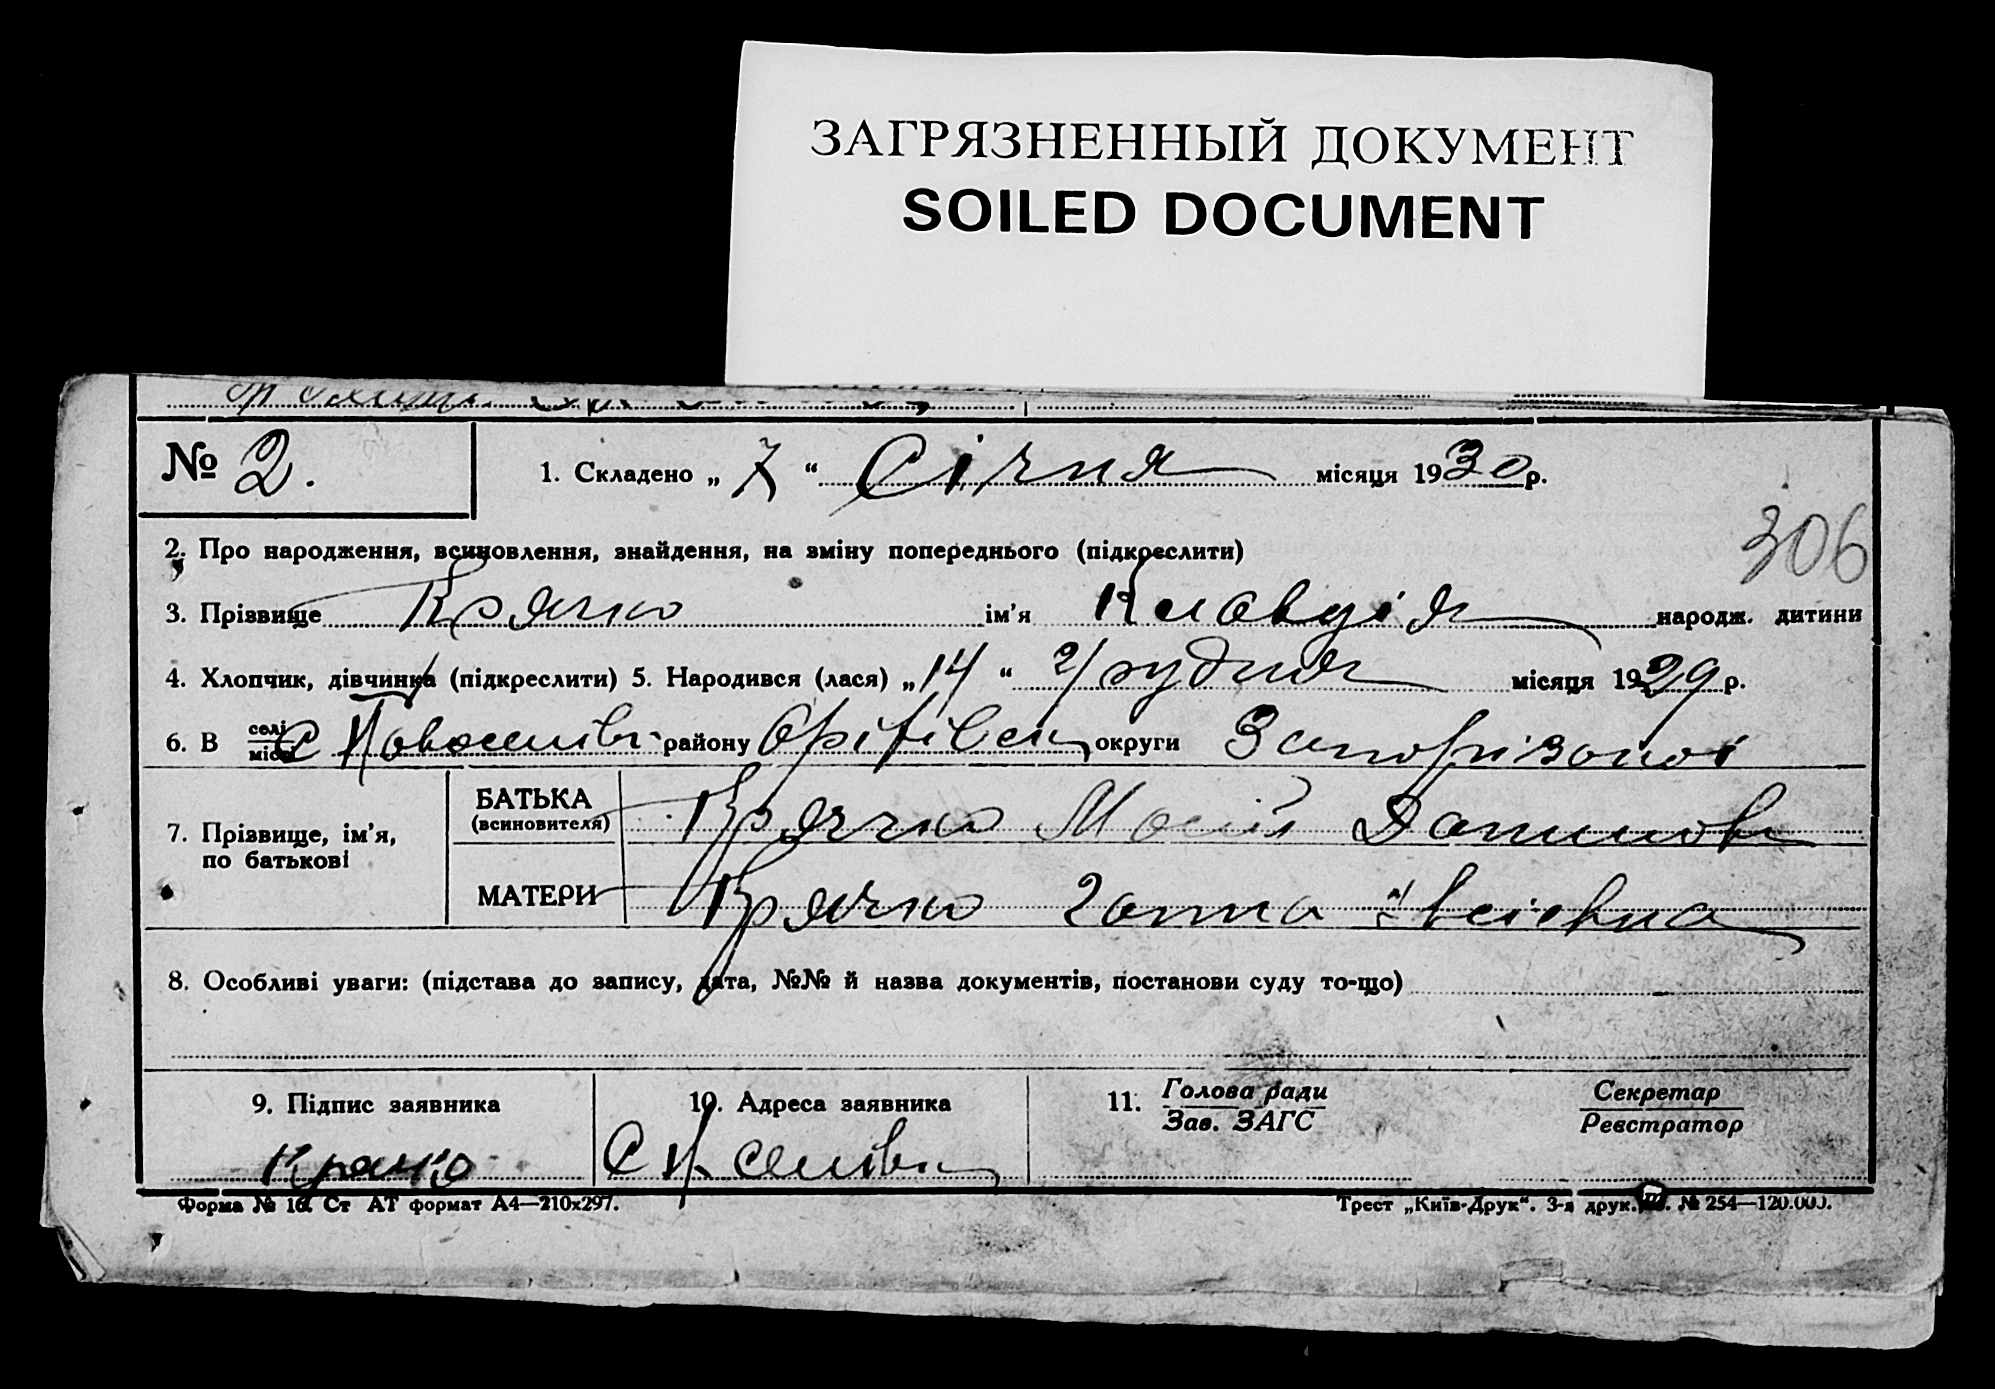 ЗАГРЯЗНЕННЫЙ ДОКУМЕНТ
SOILED DOCUMENT
№ 2. 1. Складено „ 7 “ Січня місяця 1930 р.
306
2. Про народження, всиновлення, знайдення, на зміну попереднього (підкреслити)
3. Прізвище Крячко ім'я Клавдія народж. дитини
4. Хлопчик, дівчинка (підкреслити) 5. Народився (лася) „ 14 “ Грудня місяця 1929 р.
6. В селі місті С району округи
7. Прізвище, ім'я, по батькові
БАТЬКА (всиновителя) Крячко Мосій
МАТЕРИ Крячко Ганна
8. Особливі уваги: (підстава до запису, дата, №№ й назва документів, постанови суду то-що)
9. Підпис заявника 10. Адреса заявника 11. Голова ради Секретар
Зав. ЗАГС Реєстратор
Крячко С Н.
Форма № 16. Ст АТ формат А4—210х297. Трест „Київ-Друк“. 3-я друк. № 254—120.000.